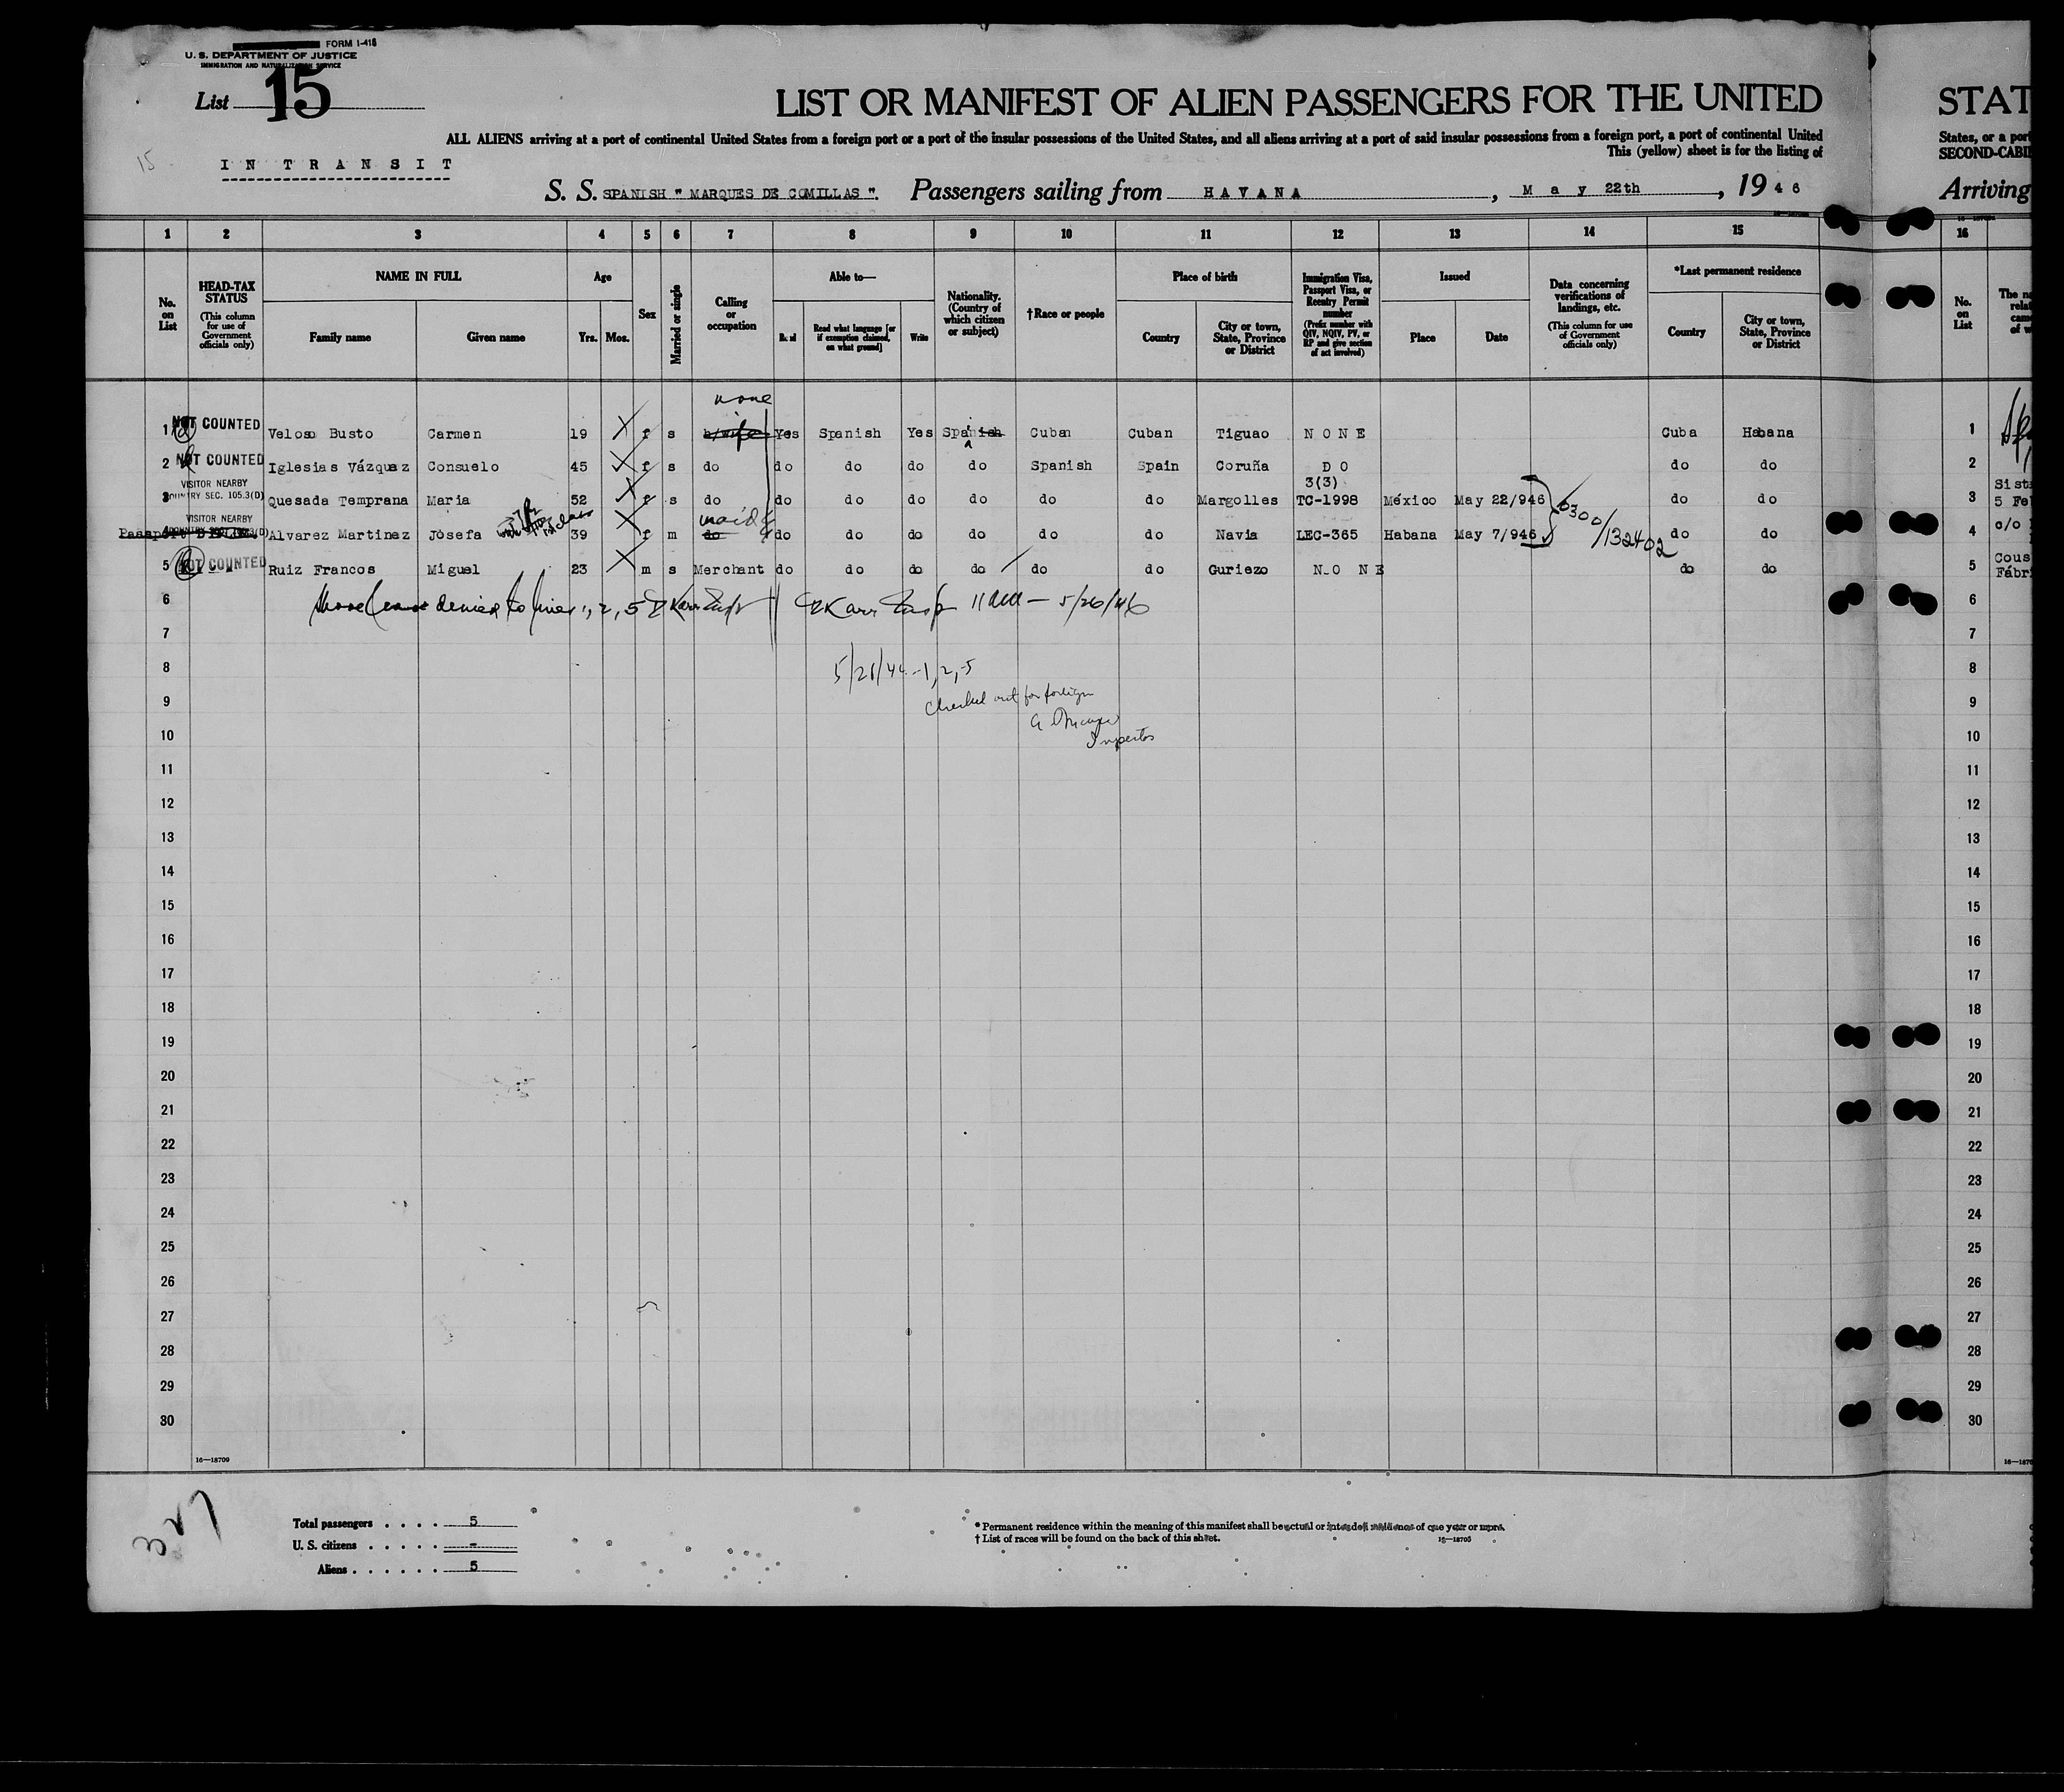 FORM I-418
U. S. DEPARTMENT OF JUSTICE
IMMIGRATION AND NATURALIZATION SERVICE
List 15
15
IN TRANSIT
LIST OR MANIFEST OF ALIEN PASSENGERS FOR THE UNITED
ALL ALIENS arriving at a port of continental United States from a foreign port or a port of the insular possessions of the United States, and all aliens arriving at a port of said insular possessions from a foreign port, a port of continental United
This (yellow) sheet is for the listing of
S. S. SPANISH " MARQUES DE COMILLAS ". Passengers sailing from HAVANA, May 22th, 1946
STAT
States, or a port
SECOND-CABI
Arriving
1 2 3 4 5 6 7 8 9 10 11 12 13 14 15 16
No. on List
HEAD-TAX STATUS (This column for use of Government officials only)
NAME IN FULL
Family name Given name
Age
Yrs. Mos.
Sex
Married or single
Calling or occupation
Able to—
Read Read what language [or if exemption claimed, on what ground] Write
Nationality. (Country of which citizen or subject)
†Race or people
Place of birth
Country City or town, State, Province or District
Immigration Visa, Passport Visa, or Reentry Permit number (Prefix number with QIV, NQIV, PV, or RP and give section of act involved)
Issued
Place Date
Data concerning verifications of landings, etc. (This column for use of Government officials only)
*Last permanent residence
Country City or town, State, Province or District
No. on List
none
1 NOT COUNTED Veloso Busto Carmen 19 f s h/wife Yes Spanish Yes Spanish Cuban Cuban Tiguao NONE Cuba Habana 1
2 NOT COUNTED Iglesias Vázquez Consuelo 45 f s do do do do do Spanish Spain Coruña DO do do 2
VISITOR NEARBY 3(3) Sist
3 COUNTRY SEC. 105.3(D) Quesada Temprana Maria 52 f s do do do do do do do Margolles TC-1998 México May 22/946 do do 3 5 Fe
VISITOR NEARBY maid 6300/132402
4 Alvarez Martinez Josefa 39 f m do do do do do do do Navia LEC-365 Habana May 7/946 do do 4 c/o
5 NOT COUNTED Ruiz Francos Miguel 23 m s Merchant do do do do do do Guriezo NONE do do 5 Cous
Fábri
6 Shore leave denied to lines 1, 2, 5 Karr Insp Karr Insp 11 AM — 5/26/46 6
7 7
8 1, 2, 5 8
9 Checked out for foreign 9
10 Inspector 10
11 11
12 12
13 13
14 14
15 15
16 16
17 17
18 18
19 19
20 20
21 21
22 22
23 23
24 24
25 25
26 26
27 27
28 28
29 29
30 30
16—18709
327
Total passengers . . . . 5
U. S. citizens . . . . . -
Aliens . . . . . . 5
* Permanent residence within the meaning of this manifest shall be actual or intended residence of one year or more.
† List of races will be found on the back of this sheet.